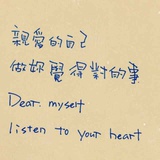 親愛的自己
做妳覺得對的事
Dear. myself
listen to your heart